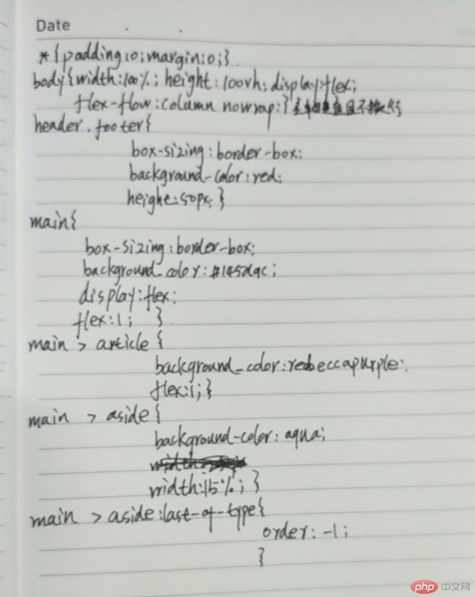 Date
*{padding:0;margin:0;}
body{width:100%; height:100vh; display:flex;
flex-flow:column nowrap;}
header.footer{
box-sizing:border-box;
background-color:red;
heighe:50px;}
main{
box-sizing:border-box;
background_color:
display:flex;
flex:1; }
main > article {
background_color:rebeccapurple;
flex:1;}
main > aside{
background-color: aqua;
width:15%; }
main > aside:last-of-type{
order: -1;
}
php 中文网